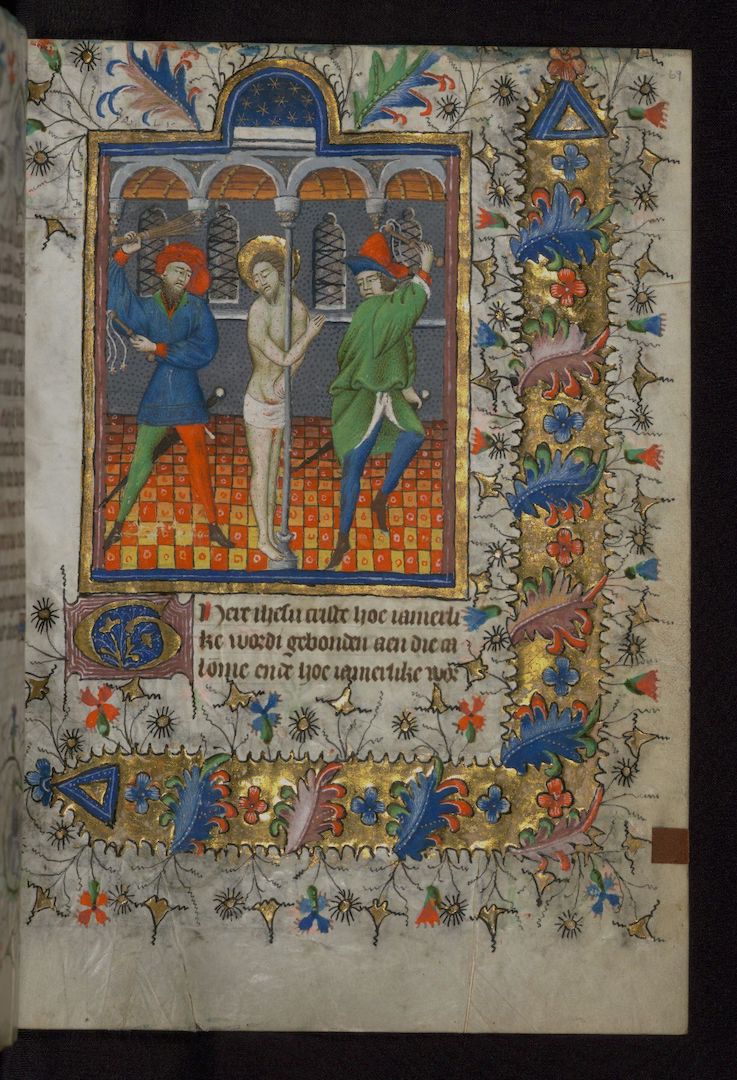 69
O Here ihesu criste hoe iamerli
ke wordi gebonden aen die co
lōme ende hoe iamerlike wor